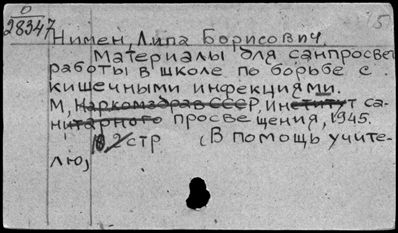 О
28347
5
Нимен, Липа Борисович.
Материалы для санпросвет
работы в школе по борьбе с
кишечными инфекциями.
М, Наркомздрав СССР, Институт са-
нитарного просвещения, 1945.
2 стр (В помощь учите-
лю)